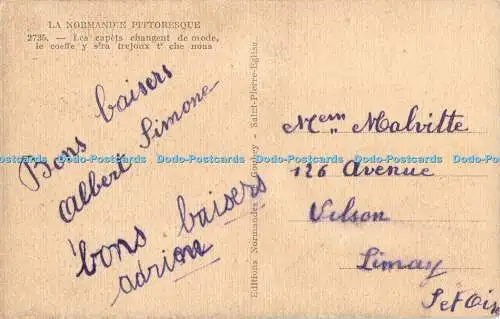 LA NORMANDIE PITTORESQUE
2735. — Les capèts changent de mode,
le coeffe y s'ra trejoux t' che nous
Bons baisers
Albert Simone
bons baisers
adrien
Editions Normandes - Saint-Pierre-Eglise
Mem Malvitte
126 Avenue
Vilson
Limay
S et Oise
Dodo-Postcards Dodo-Postcards Dodo-Postcards Dodo-Postcards Dodo-Postcards Dodo-Postcards